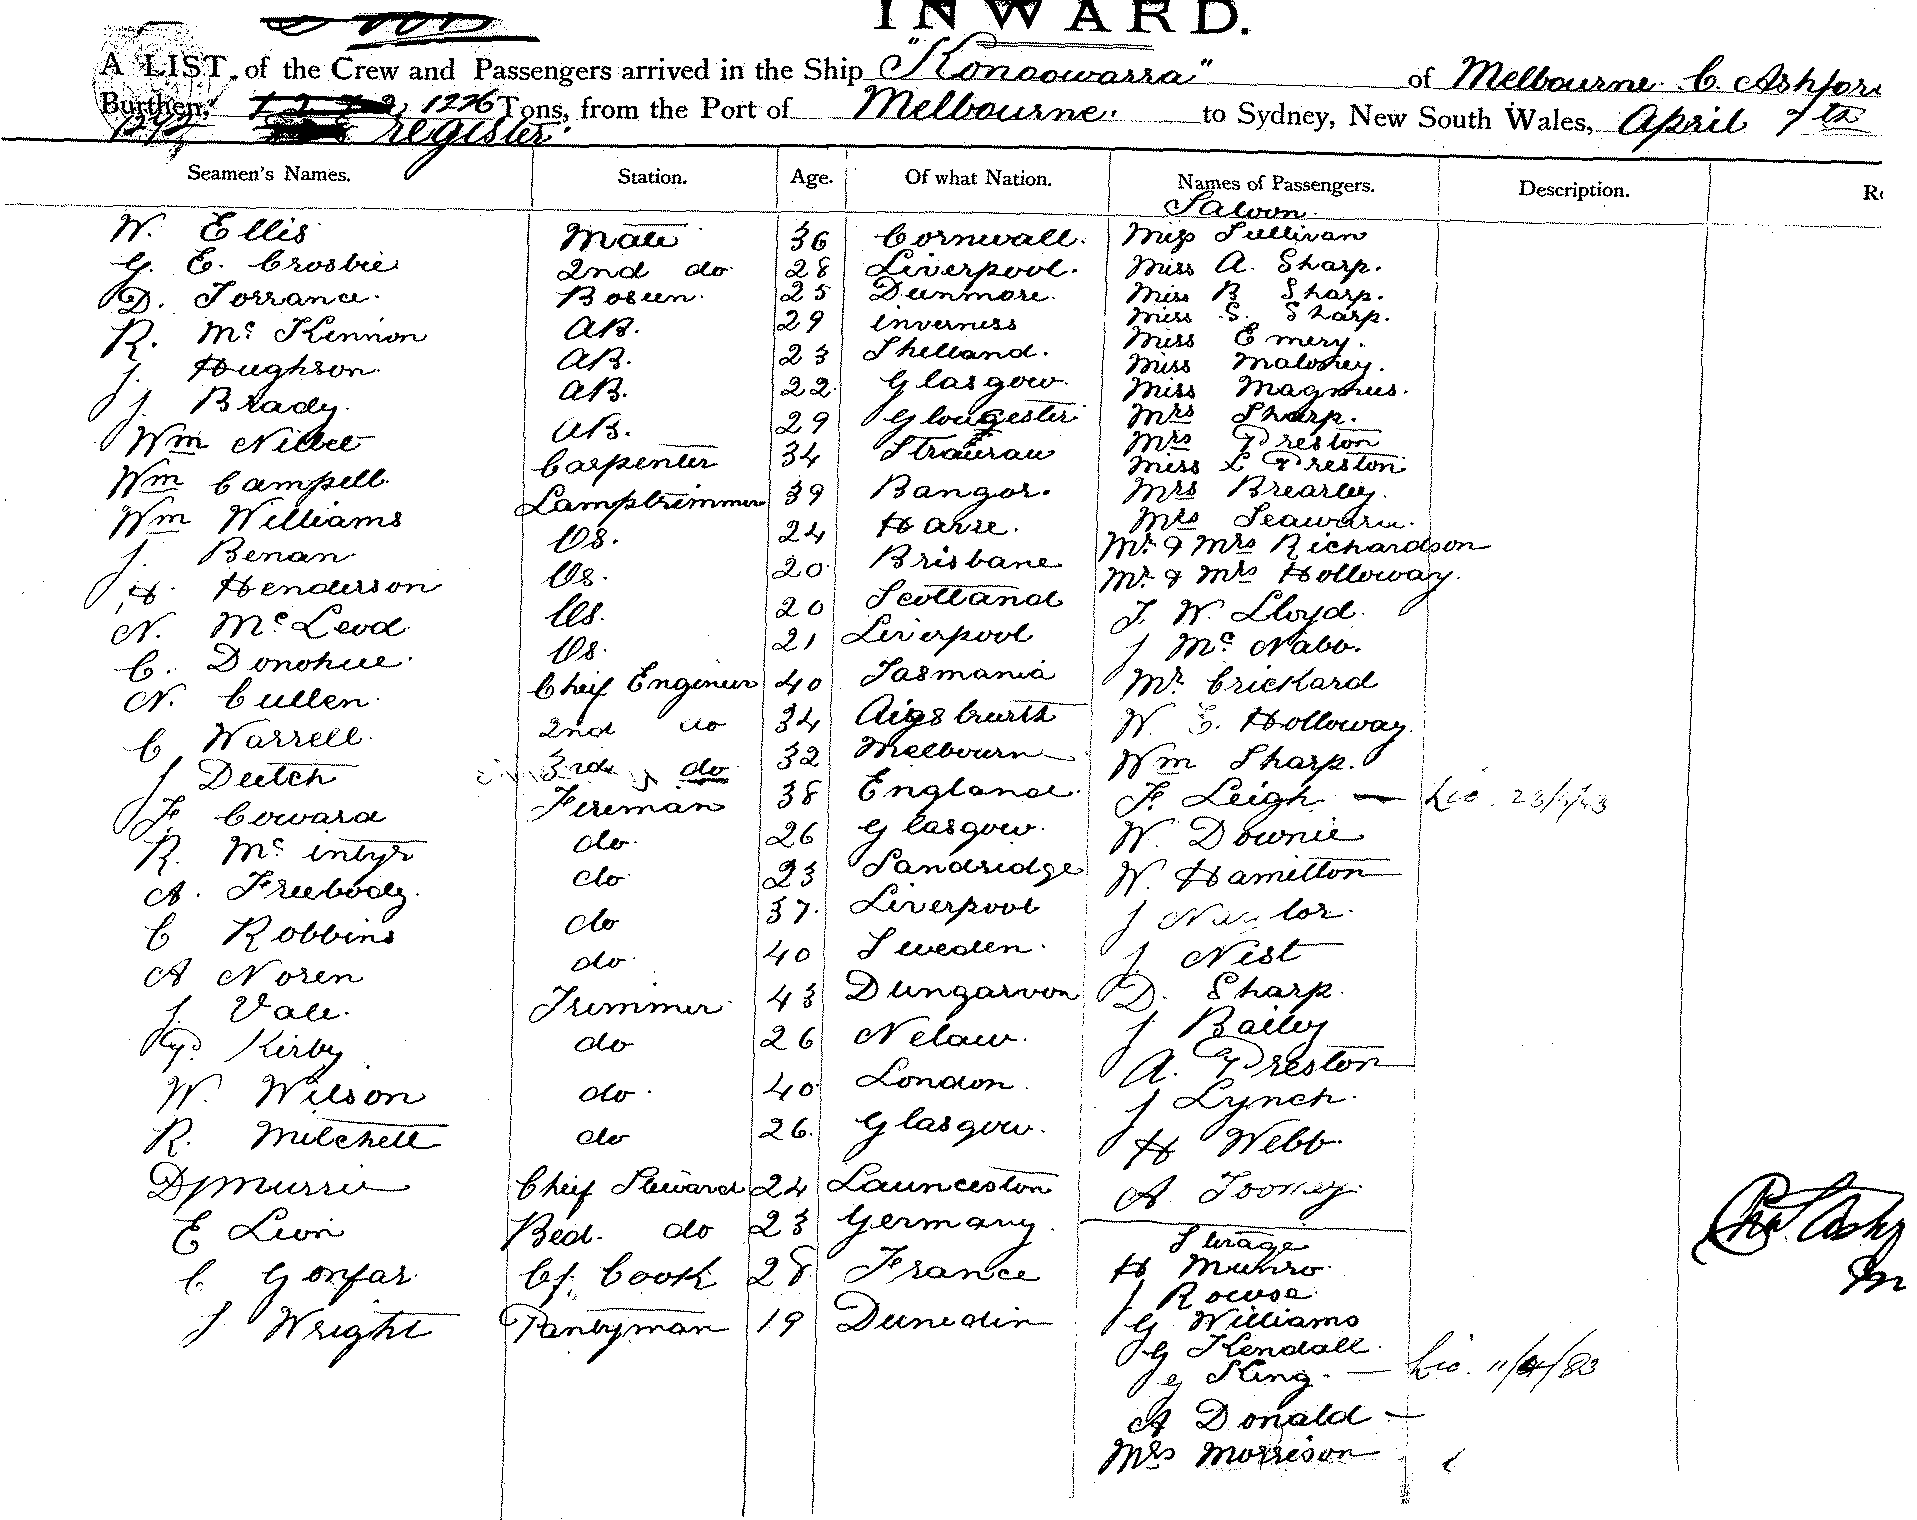 INWARD.
A LIST of the Crew and Passengers arrived in the Ship "Konoowarra" of Melbourne. C. Ashford
Burthen, 1226 Tons, from the Port of Melbourne. to Sydney, New South Wales, April 7th
register.
Seamen's Names. Station. Age. Of what Nation. Names of Passengers. Description.
Saloon.
W. Ellis Mate 36 Cornwall. Miss Sullivan
G. E. Crosbie 2nd do 28 Liverpool. Miss A. Sharp.
D. Torrance. Bosun. 25 Dunmore. Miss B Sharp.
R. Mc Kinnon AB. 29 inverness Miss S. Sharp.
J. Hughson. AB. 23 Shetland. Miss Emery.
J. Brady. AB. 22. Glasgow. Miss Maloney.
Wm AB. 29 Gloucester Miss Magnus.
Wm Campell. Carpenter 34 Mrs Sharp.
Wm Williams Lamptrimmer 39 Bangor. Mrs Preston
J. Benan. Os. 24 Harre. Miss L Preston
H. Henderson Os. 20 Brisbane Mrs Brearley.
N. Mc Leod Os. 20 Scotland Mrs
C. Donohue. Os. 21 Liverpool Mr. & Mrs Richardson
N. Cullen. Chief Engineer 40 Tasmania Mr. & Mrs Holloway.
C Warrell. 2nd do 34 Aigsburth J. W. Lloyd.
J Deitch 3rd do 32 Melbourn J Mc Nabb.
F. Coward Fireman 38 England. Mr. Crickard
R. Mc intyr do. 26 Glasgow. W. Holloway.
A. Freebody. do 23 Sandridge Wm Sharp.
C Robbins do 37. Liverpool F. Leigh — Lic.
A Noren do. 40 Sweden. W. Downie
J. Vale. Trimmer 43 Dungarvon W. Hamilton
Kirby do 26 Nelaw. J
W. Wilson do. 40 London. J. Nist
R. Mitchell do 26. Glasgow. D. Sharp.
D J Murrie Chief Steward 24 Launceston J Bailey
E Lion Bed. do 23 Germany. A. Preston
C Gonfar Cf. Cook 28 France J Lynch.
J Wright Pantryman 19 Dunedin H Webb.
A. Toohey.
Sterage
H Munro.
J Rowse.
G Williams
G Kendall.
G King. — Lic. 11/4/83
A Donald —
Mrs Morrison